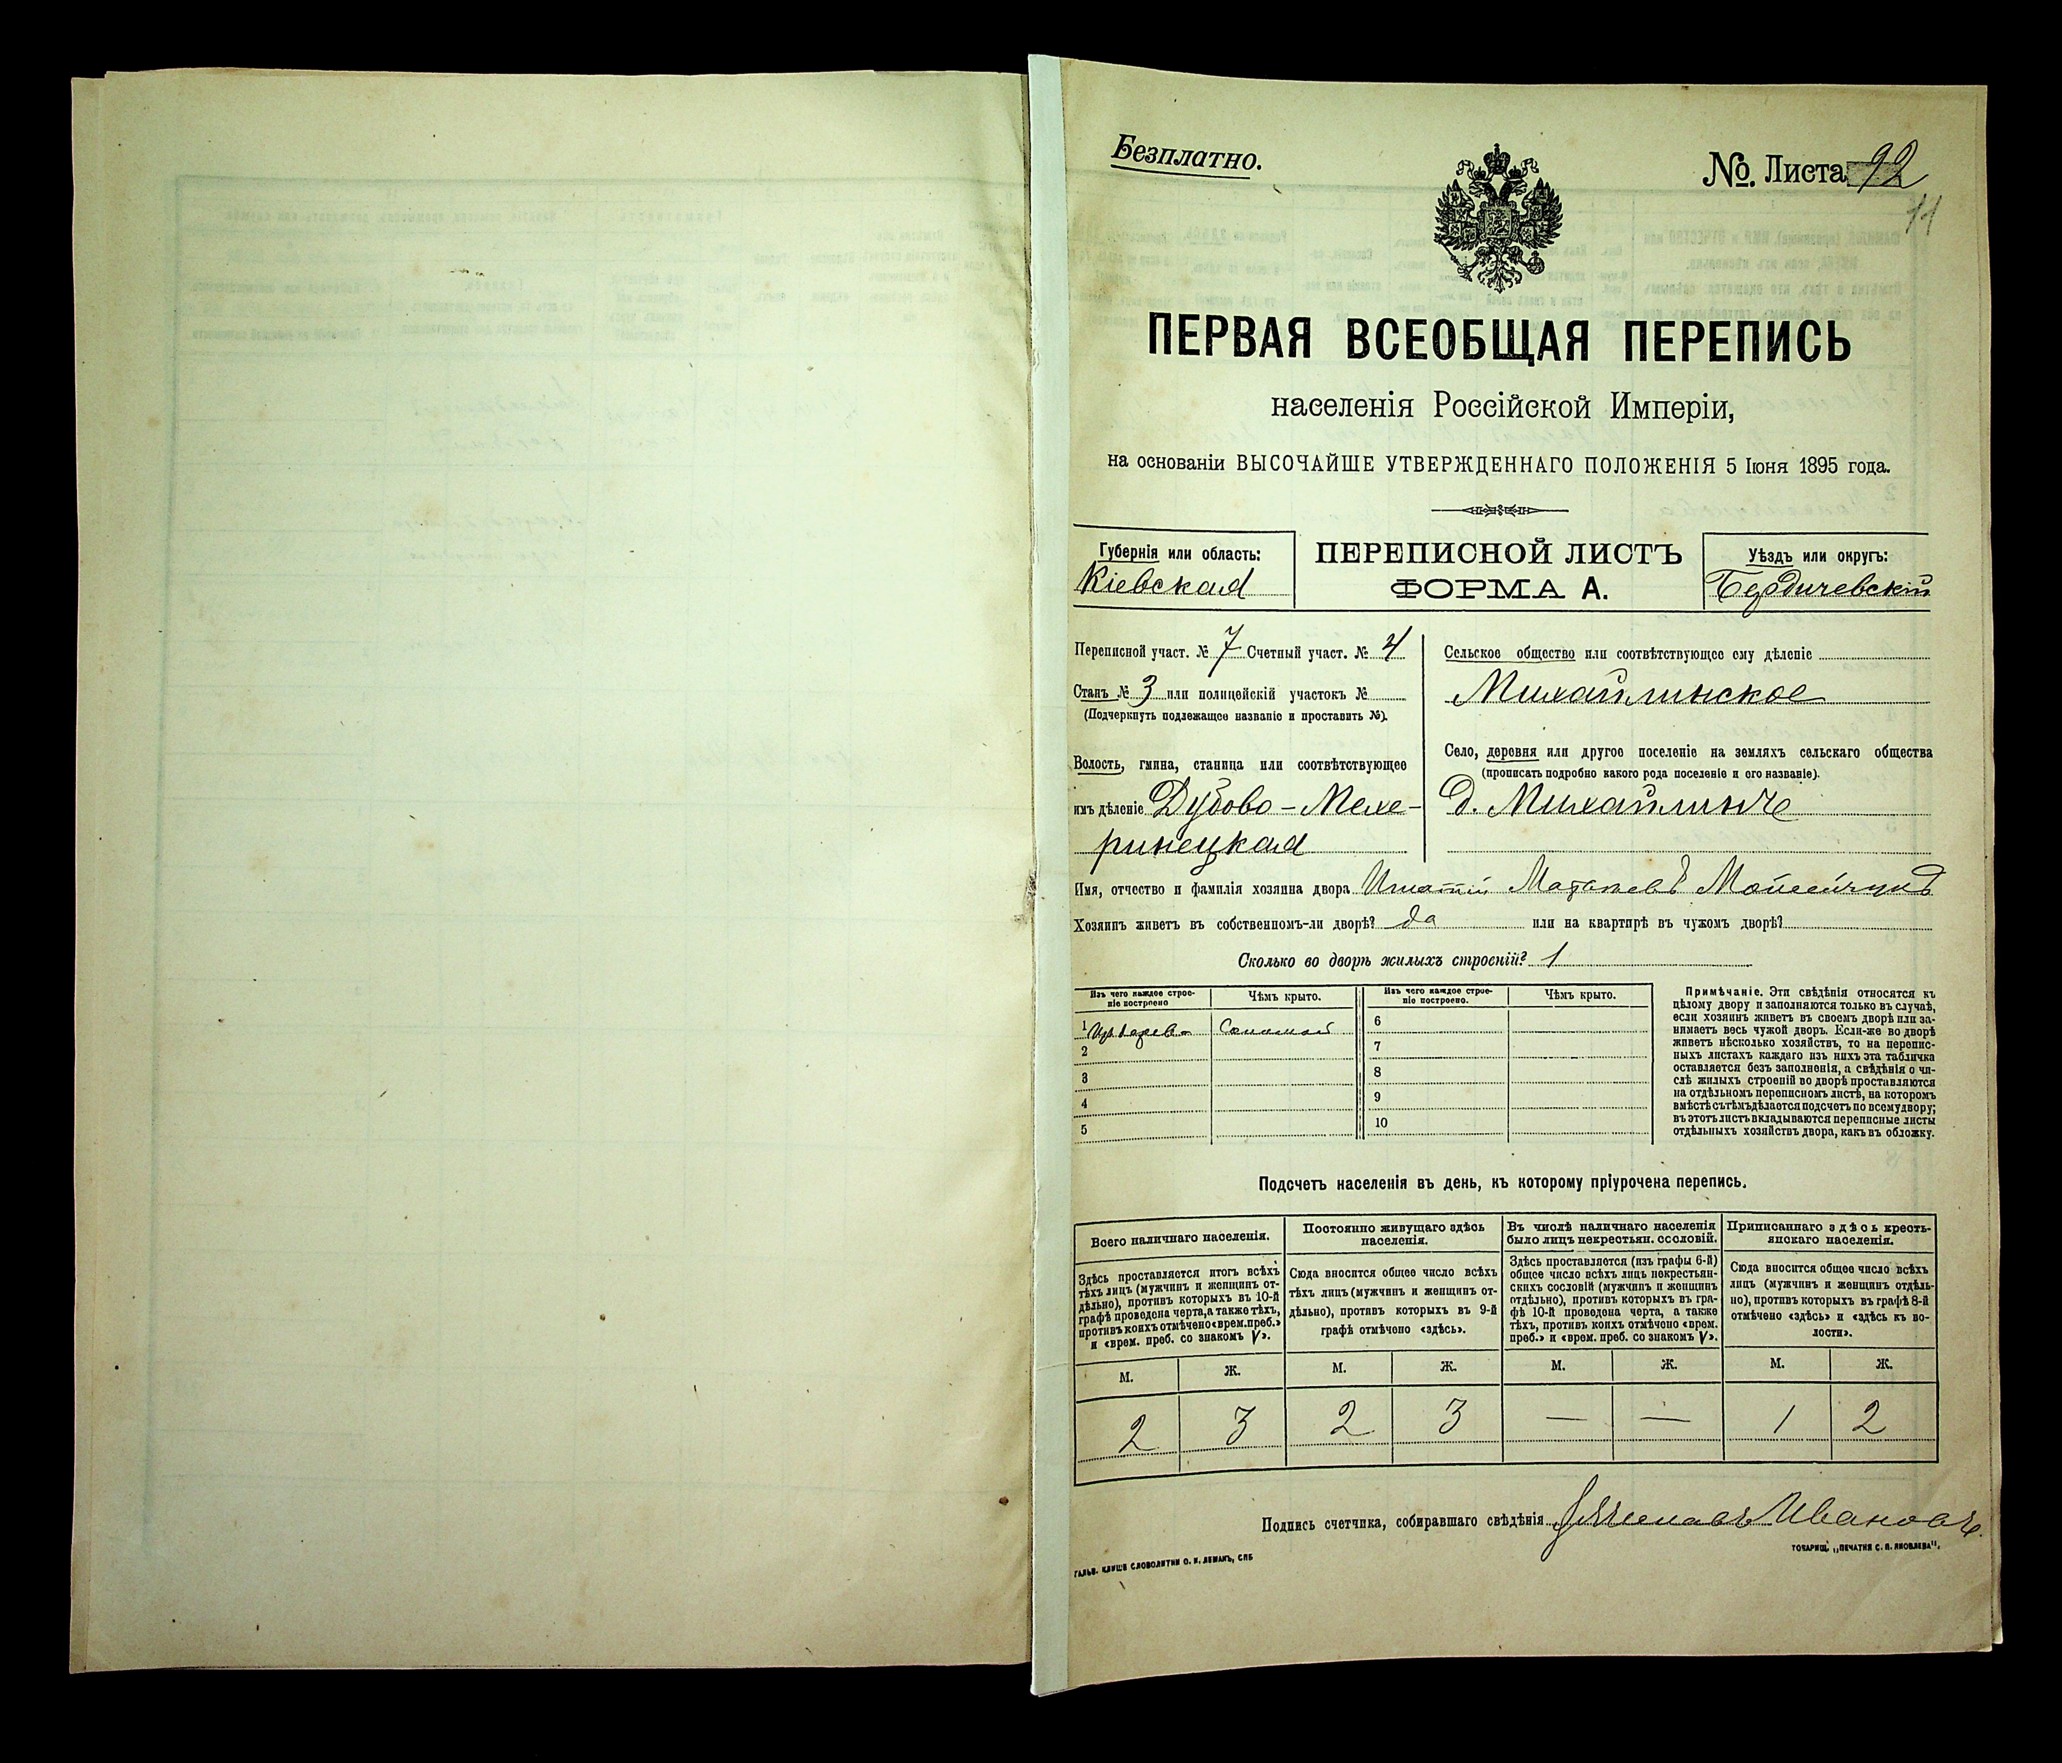 Безплатно.
№. Листа 92
11
ПЕРВАЯ ВСЕОБЩАЯ ПЕРЕПИСЬ
населенія Россійской Имперіи,
на основаніи ВЫСОЧАЙШЕ УТВЕРЖДЕННАГО ПОЛОЖЕНІЯ 5 Іюня 1895 года.
Губернія или область:
Кіевская
ПЕРЕПИСНОЙ ЛИСТЪ
ФОРМА А.
Уѣздъ или округъ:
Бердичевскій
Переписной участ. № 7 Счетный участ. № 4
Станъ № 3 или полицейскій участокъ №
(Подчеркнуть подлежащее названіе и проставить №).
Волость, гмина, станица или соотвѣтствующее
имъ дѣленіе Дубово-Мехе-
ринецкая
Сельское общество или соотвѣтствующее ему дѣленіе
Михайлинское
Село, деревня или другое поселеніе на земляхъ сельскаго общества
(прописать подробно какого рода поселеніе и его названіе).
д. Михайлинъ
Имя, отчество и фамилія хозяина двора Игнатій
Хозяинъ живетъ въ собственномъ-ли дворѣ? да или на квартирѣ въ чужомъ дворѣ?
Сколько во дворѣ жилыхъ строеній? 1
Изъ чего каждое строе-
ніе построено
Чѣмъ крыто.
Изъ чего каждое строе-
ніе построено.
Чѣмъ крыто.
1 Изъ дерева Соломой
2
3
4
5
6
7
8
9
10
Примѣчаніе. Эти свѣдѣнія относятся къ
цѣлому двору и заполняются только въ случаѣ,
если хозяинъ живетъ въ своемъ дворѣ или за-
нимаетъ весь чужой дворъ. Если-же во дворѣ
живетъ нѣсколько хозяйствъ, то на перепис-
ныхъ листахъ каждаго изъ нихъ эта табличка
оставляется безъ заполненія, а свѣдѣнія о чи-
слѣ жилыхъ строеній во дворѣ проставляются
на отдѣльномъ переписномъ листѣ, на которомъ
вмѣстѣ съ тѣмъ дѣлается подсчетъ по всему двору;
въ этотъ листъ вкладываются переписные листы
отдѣльныхъ хозяйствъ двора, какъ въ обложку.
Подсчетъ населенія въ день, къ которому пріурочена перепись.
Всего наличнаго населенія.
Здѣсь проставляется итогъ всѣхъ
тѣхъ лицъ (мужчинъ и женщинъ от-
дѣльно), противъ которыхъ въ 10-й
графѣ проведена черта, а также тѣхъ,
противъ коихъ отмѣчено «врем. преб.»
и «врем. преб. со знакомъ V».
Постоянно живущаго здѣсь
населенія.
Сюда вносится общее число всѣхъ
тѣхъ лицъ (мужчинъ и женщинъ от-
дѣльно), противъ которыхъ въ 9-й
графѣ отмѣчено «здѣсь».
Въ числѣ наличнаго населенія
было лицъ некрестьян. сословій.
Здѣсь проставляется (изъ графы 6-й)
общее число всѣхъ лицъ некрестьян-
скихъ сословій (мужчинъ и женщинъ
отдѣльно), противъ которыхъ въ гра-
фѣ 10-й проведена черта, а также
тѣхъ, противъ коихъ отмѣчено «врем.
преб.» и «врем. преб. со знакомъ V».
Приписаннаго здѣсь кресть-
янскаго населенія.
Сюда вносится общее число всѣхъ
лицъ (мужчинъ и женщинъ отдѣль-
но), противъ которыхъ въ графѣ 8-й
отмѣчено «здѣсь» и «здѣсь въ во-
лости».
М. Ж. М. Ж. М. Ж. М. Ж.
2 3 2 3 — — 1 2
Подпись счетчика, собиравшаго свѣдѣнія Ивановъ
ГАЛЬВ. КЛИШЕ СЛОВОЛИТНИ О. И. ЛЕМАНЪ, СПБ
ТОВАРИЩ. „ПЕЧАТНЯ С. П. ЯКОВЛЕВА".